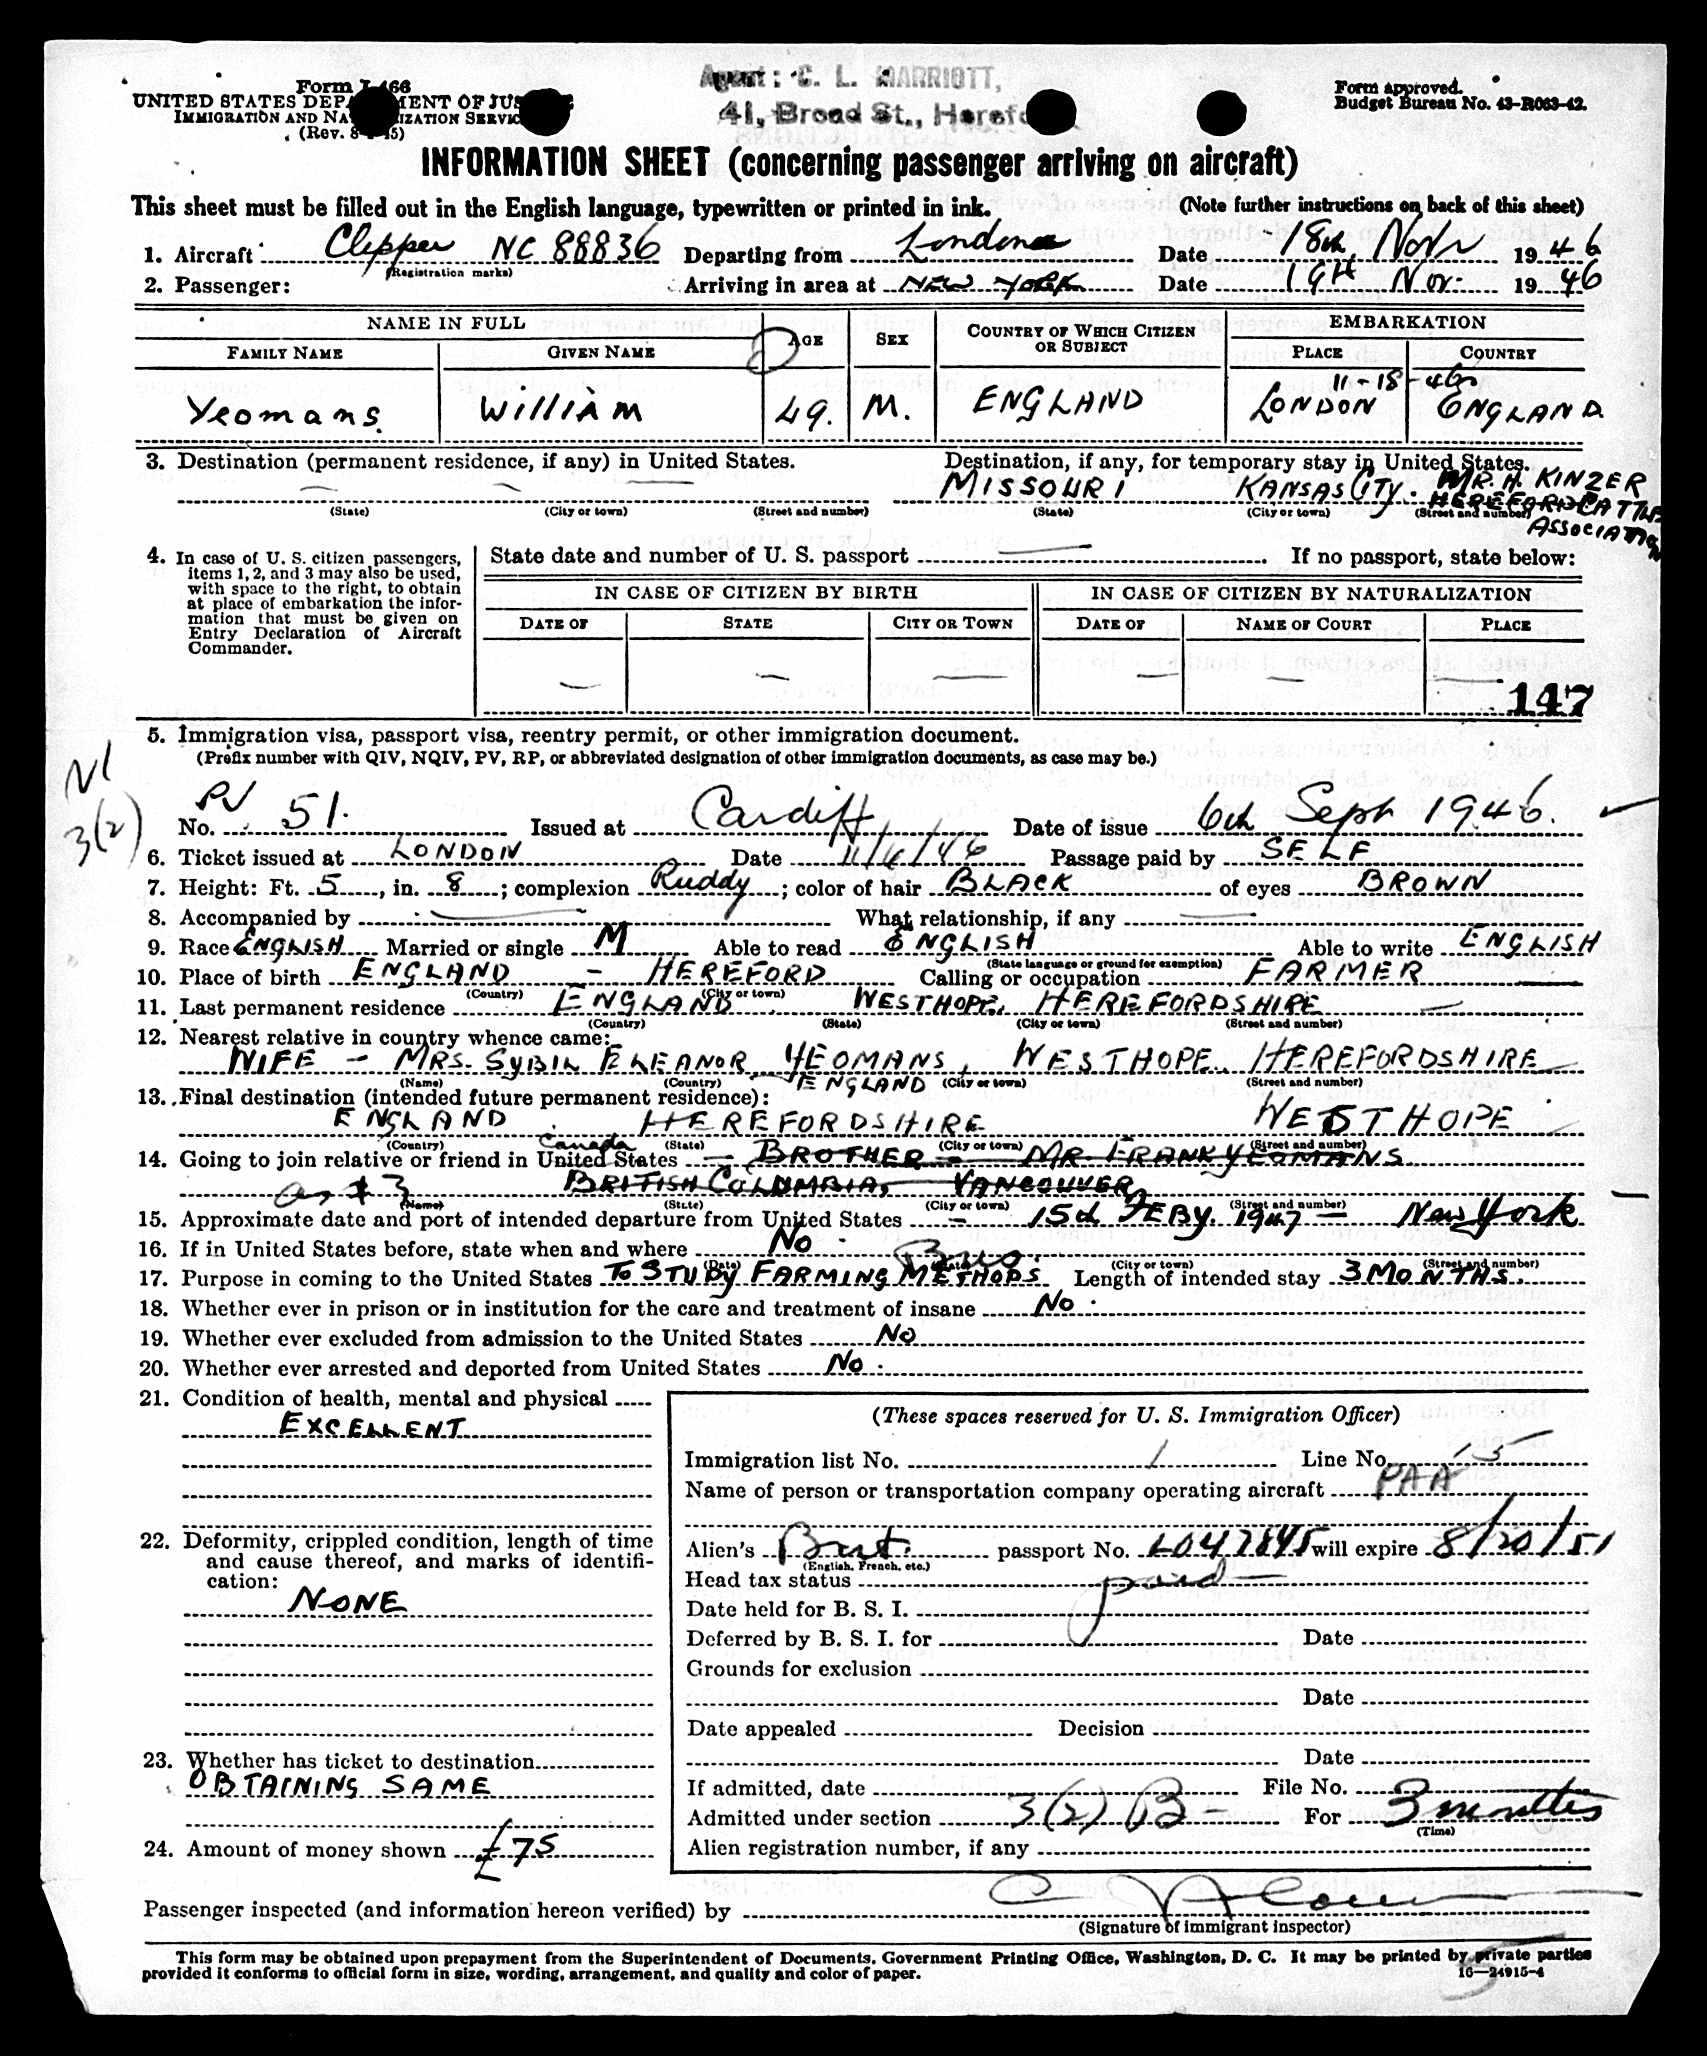 Agent: C. L. MARRIOTT,
41, Broad St., Heref
Form I-466
UNITED STATES DEPARTMENT OF JUSTICE
IMMIGRATION AND NATURALIZATION SERVICE
(Rev. 8-1-45)
Form approved.
Budget Bureau No. 43-R083-42.
INFORMATION SHEET (concerning passenger arriving on aircraft)
This sheet must be filled out in the English language, typewritten or printed in ink. (Note further instructions on back of this sheet)
1. Aircraft Clipper NC 88836 Departing from London Date 18th Novr 1946
(Registration marks)
2. Passenger: Arriving in area at NEW YORK Date 19th Nov. 1946
NAME IN FULL AGE SEX COUNTRY OF WHICH CITIZEN OR SUBJECT EMBARKATION
FAMILY NAME GIVEN NAME PLACE COUNTRY
11-18-46
Yeomans. WILLIAM 49. M. ENGLAND LONDON ENGLAND
3. Destination (permanent residence, if any) in United States. Destination, if any, for temporary stay in United States.
— — — MISSOURI KANSAS CITY. MR. H. KINZER
HEREFORD CATTLE
(State) (City or town) (Street and number) (State) (City or town) (Street and number)
ASSOCIATION
4. In case of U. S. citizen passengers, items 1, 2, and 3 may also be used, with space to the right, to obtain at place of embarkation the information that must be given on Entry Declaration of Aircraft Commander.
State date and number of U. S. passport — If no passport, state below:
IN CASE OF CITIZEN BY BIRTH IN CASE OF CITIZEN BY NATURALIZATION
DATE OF STATE CITY OR TOWN DATE OF NAME OF COURT PLACE
— — — — — —
147
5. Immigration visa, passport visa, reentry permit, or other immigration document.
(Prefix number with QIV, NQIV, PV, RP, or abbreviated designation of other immigration documents, as case may be.)
3(2)
No. PV 51. Issued at Cardiff Date of issue 6th Sept 1946.
6. Ticket issued at LONDON Date Passage paid by SELF
7. Height: Ft. 5, in. 8; complexion Ruddy; color of hair BLACK of eyes BROWN
8. Accompanied by — What relationship, if any —
9. Race ENGLISH Married or single M Able to read ENGLISH Able to write ENGLISH
(State language or ground for exemption)
10. Place of birth ENGLAND - HEREFORD Calling or occupation FARMER
(Country) (City or town)
11. Last permanent residence ENGLAND WESTHOPE, HEREFORDSHIRE —
(Country) (State) (City or town) (Street and number)
12. Nearest relative in country whence came:
WIFE - MRS. SYBIL ELEANOR YEOMANS, WESTHOPE, HEREFORDSHIRE
(Name) (Country) ENGLAND (City or town) (Street and number)
13. Final destination (intended future permanent residence):
ENGLAND. HEREFORDSHIRE WESTHOPE
(Country) (State) (City or town) (Street and number)
Canada
14. Going to join relative or friend in United States — BROTHER - MR FRANK YEOMANS
as #3 BRITISH COLUMBIA, VANCOUVER,
(Name) (State) (City or town) (Street and number)
15. Approximate date and port of intended departure from United States - 15th FEBY. 1947 - New York
16. If in United States before, state when and where No.
(Date) (State) (City or town) (Street and number)
17. Purpose in coming to the United States TO STUDY FARMING METHODS Length of intended stay 3 MONTHS.
18. Whether ever in prison or in institution for the care and treatment of insane No.
19. Whether ever excluded from admission to the United States No
20. Whether ever arrested and deported from United States No.
21. Condition of health, mental and physical
EXCELLENT
22. Deformity, crippled condition, length of time and cause thereof, and marks of identification:
NONE
23. Whether has ticket to destination
OBTAINING SAME
24. Amount of money shown £75
(These spaces reserved for U. S. Immigration Officer)
Immigration list No. 1 Line No. 15
Name of person or transportation company operating aircraft PAA
Alien's Brit. passport No. L047845 will expire 8/20/51
(English, French, etc.)
Head tax status paid —
Date held for B. S. I.
Deferred by B. S. I. for Date
Grounds for exclusion
Date
Date appealed Decision
Date
If admitted, date File No.
Admitted under section 3(2) B - For 3 months
(Time)
Alien registration number, if any
Passenger inspected (and information hereon verified) by
(Signature of immigrant inspector)
This form may be obtained upon prepayment from the Superintendent of Documents, Government Printing Office, Washington, D. C. It may be printed by private parties
provided it conforms to official form in size, wording, arrangement, and quality and color of paper.
16—24915-4
5